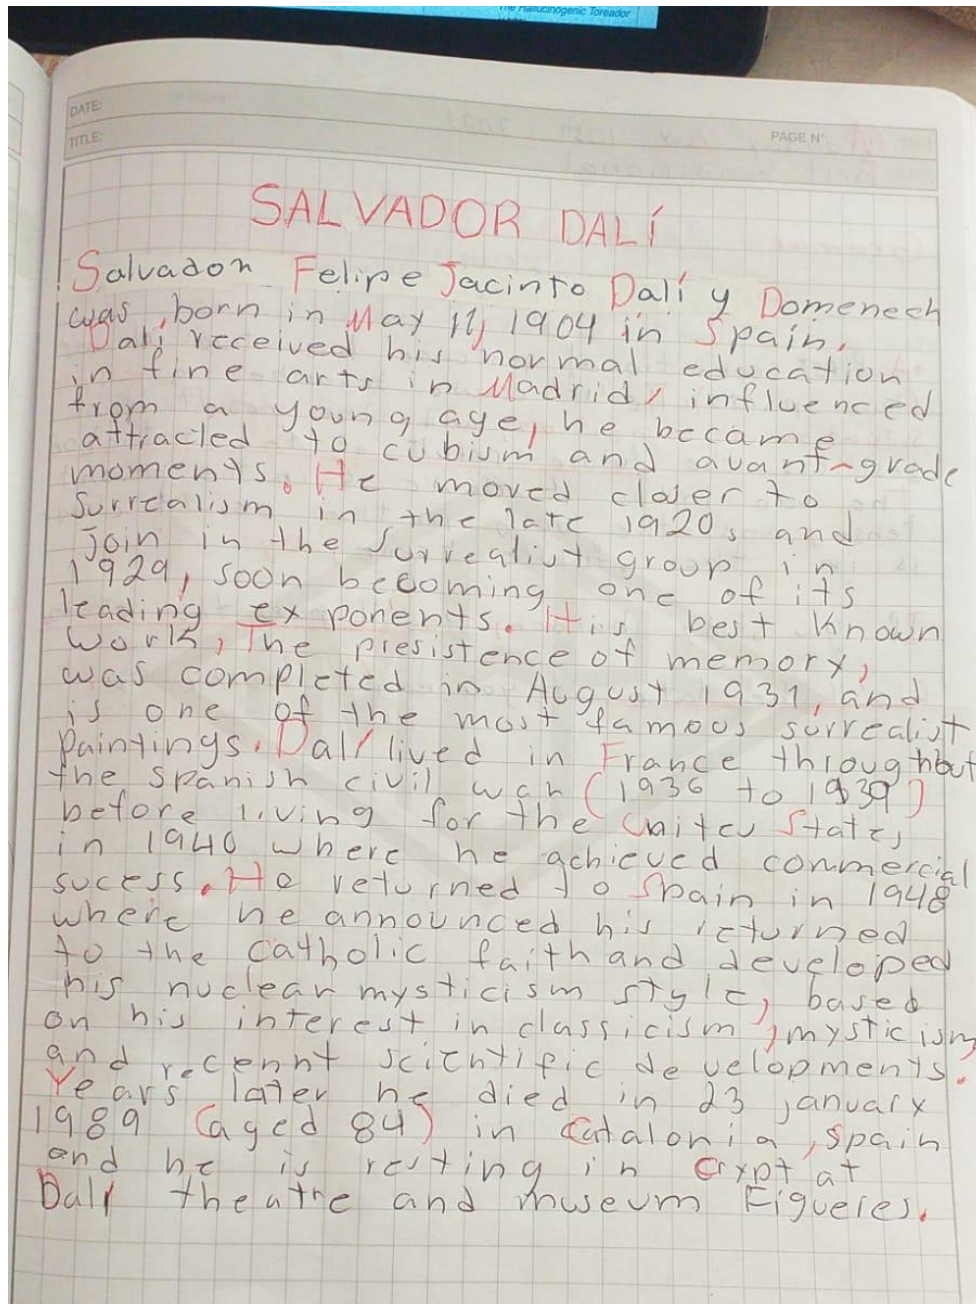 The Hallucinogenic Toreador
DATE:
TITLE:
PAGE N°:
SALVADOR DALÍ
Salvador Felipe Jacinto Dalí y Domenech
was born in May 11, 1904 in Spain.
Dalí received his normal education
in fine arts in Madrid, influenced
from a young age, he became
attracted to cubism and avant-grade
moments. He moved closer to
Surrealism in the late 1920s and
join in the surrealist group in
1929, soon becoming one of its
leading exponents. His best known
work, The presistence of memory,
was completed in August 1931, and
is one of the most famous surrealist
paintings. Dalí lived in France throughout
the spanish civil war (1936 to 1939)
before living for the United States
in 1940 where he achieved conmercial
sucess. He returned to Spain in 1948
where he announced his returned
to the catholic faith and developed
his nuclear mysticism style, based
on his interest in classicism, mysticism,
and recennt scientific developments.
Years later he died in 23 january
1989 (aged 84) in Catalonia, spain
and he is resting in Crypt at
Dalí theatre and museum Figueres.